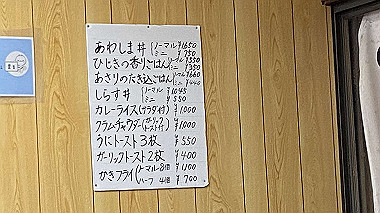 あわしま丼（ノーマル ¥1650
ミニ ¥750
ひじきの香りごはん（ノーマル ¥550
ミニ ¥350
あさりのたき込ごはん（ノーマル ¥660
ミニ ¥440
しらす丼（ノーマル ¥1045
ミニ ¥550
カレーライス（サラダ付） ¥1000
クラムチャウダー（ガーリックトースト付） ¥1000
うにトースト3枚 ¥550
ガーリックトースト2枚 ¥400
かきフライ（ノーマル 8個 ¥1100
ハーフ 4個 ¥700